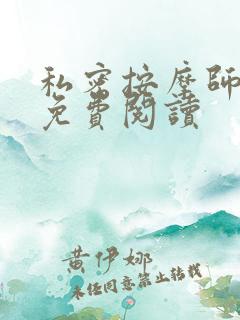 私密按摩師
免費閱讀
黄伊娜
未经同意禁止转载